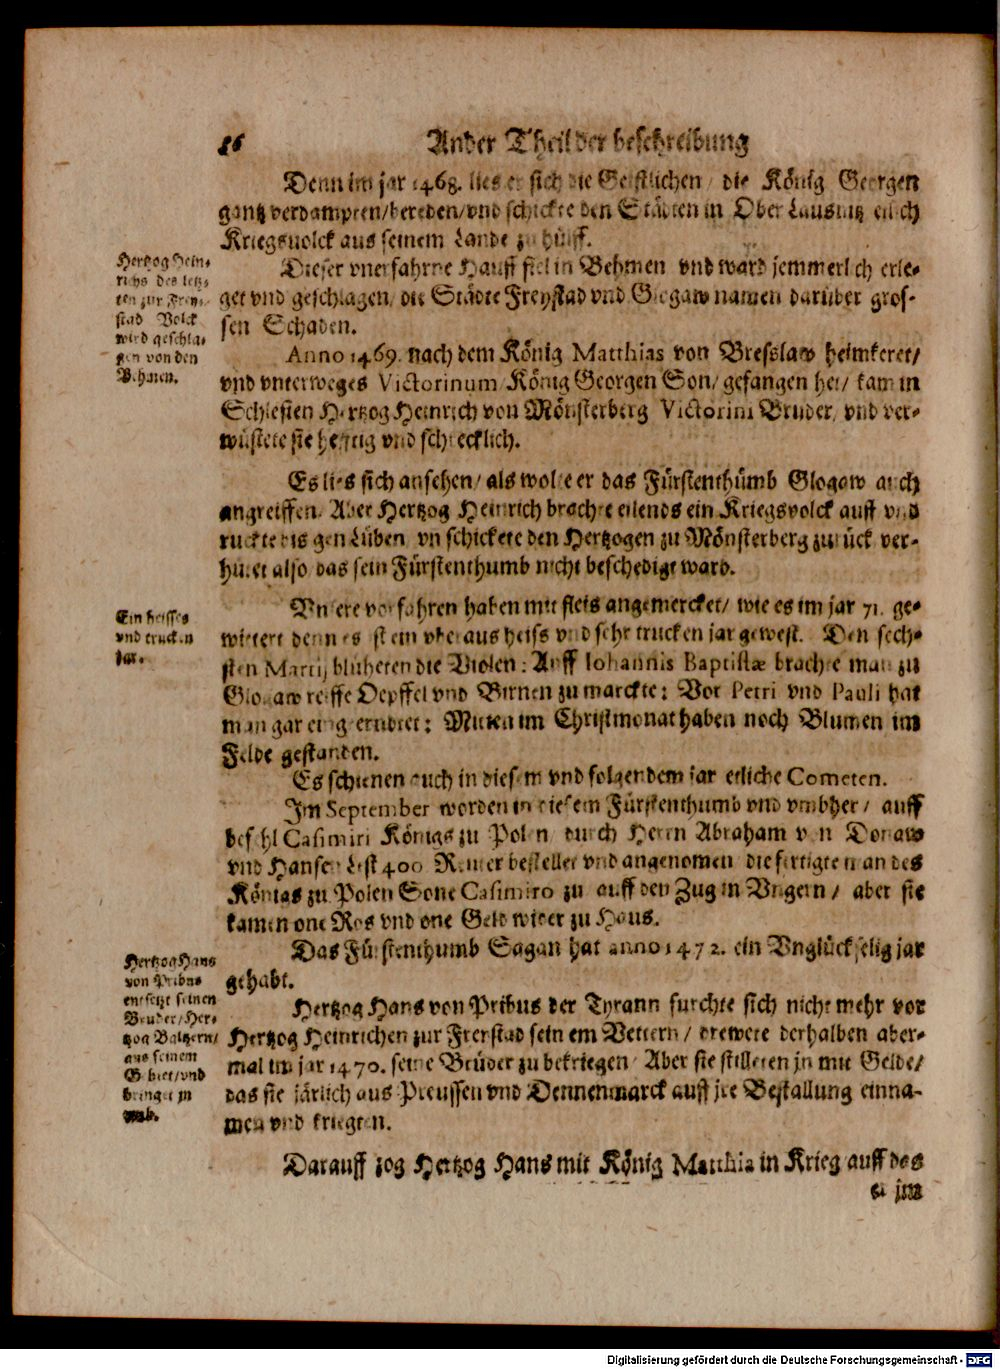 86 Ander Theil der beschreibung
Denn im jar 1468. lies er sich die Geistlichen / die König Georgen
gantz verdampten/bereden/vnd schickte den Städten in Ober Lausnitz etlich
Kriegsuolck aus seinem Lande zu hülff.
Hertzog Hein-
richs des letz-
ten zur Frey-
stad Volck
wird geschla-
gen von den
Behmen.
Dieser vnerfahrne Hauff fiel in Behmen vnd ward jemmerlich erle-
get vnd geschlagen/ die Städte Freystad vnd Glogaw namen darüber gros-
sen Schaden.
Anno 1469. nach dem König Matthias von Bresslaw heimkeret/
vnd vnterweges Victorinum/König Georgen Son/gefangen het/ kam in
Schlesien Hertzog Heinrich von Mönsterberg Victorini Bruder/ vnd ver-
wüstete sie hefftig vnd schrecklich.
Es lies sich ansehen/ als wolte er das Fürstenthümb Glogaw auch
angreiffen. Aber Hertzog Heinrich brachte eilends ein Kriegsvolck auff vnd
ruckte bis gen Lüben/ vn schickete den Hertzogen zu Mönsterberg zurück/ ver-
hütet also das sein Fürstenthumb nicht beschediget ward.
Ein heisses
vnd trucken
jar.
Vnsere vorfahren haben mit fleis angemercket/ wie es im jar 71. ge-
wittert/ denn es ist ein vberaus heiss vnd sehr trucken jar gewest. Den sech-
sten Martij blüheten die Violen: Auff Iohannis Baptistæ brachte man zu
Glogaw reiffe Oepffel vnd Birnen zu marckte: Vor Petri vnd Pauli hat
man gar eingeerndtet: Mitten im Christmonat haben noch Blumen im
Felde gestanden.
Es schienen auch in diesem vnd folgendem jar etliche Cometen.
Im September worden in diesem Fürstenthumb vnd vmbher/ auff
befehl Casimiri Königs zu Polen/ durch Herrn Abraham von Donaw
vnd Hansen List 400 Reuter bestellet vnd angenomen/ die fertigten an des
Königs zu Polen Sone Casimiro zu auff den Zug in Vngern/ aber sie
kamen one Ros vnd one Geld wider zu Haus.
Das Fürstenthumb Sagan hat anno 1472. ein Vnglückselig jar
gehabt.
Hertzog Hans
von Pribus
entsetzt seinen
Bruder/Her-
tzog Baltzern/
aus seinem
Gebiet/vnd
bringet jn
vmb.
Hertzog Hans von Pribus der Tyrann furchte sich nicht mehr vor
Hertzog Heinrichen zur Freistad seinem Vettern/ drewete derhalben aber-
mal im jar 1470. seine Brüder zu bekriegen/ Aber sie stilleten jn mit Gelde/
das sie järlich aus Preussen vnd Dennenmarck auff jre Bestallung einna-
men vnd kriegten.
Darauff zog Hertzog Hans mit König Matthia in Krieg auff des
jm
Digitalisierung gefördert durch die Deutsche Forschungsgemeinschaft - DFG